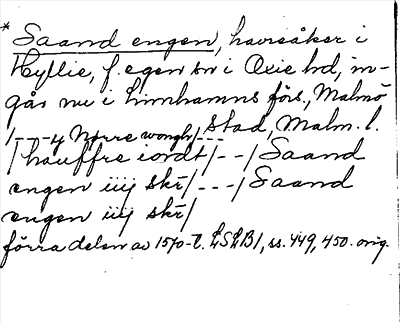 * Saand engen, havreåker i
Hyllie, f. egen sn i Oxie hd, in-
går nu i Limhamns förs., Malmö
/---y Nørre wongh/--- stad, Malm. l.
/hauffre iordt/--/ Saand
engen iiij skr/---/ Saand
engen iiij skr/
förra delen av 1570-t. LSLB1, ss. 449, 450. orig.